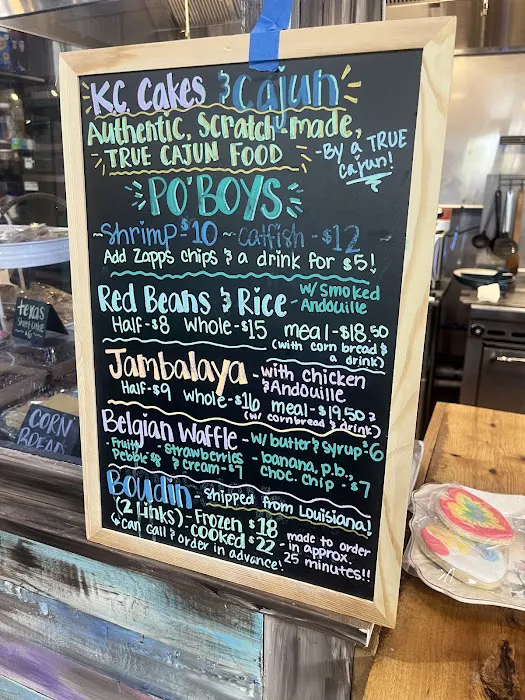 K.C. Cakes & Cajun
Authentic, Scratch-made,
TRUE CAJUN FOOD
-By a TRUE
cajun!
PO'BOYS
~Shrimp-$10 ~ catfish - $12 ~
Add Zapps chips & a drink for $5!
Red Beans & Rice - w/ Smoked
Andouille
Half-$8 Whole-$15 meal-$18.50
(with corn bread &
a drink)
Jambalaya - with chicken
& Andouille
Half-$9 whole-$16 meal-$19.50
(w/ cornbread & drink)
Belgian Waffle - w/ butter & syrup $6
- Fruity
Pebble $8
- Strawberries
& cream-$7
- banana, p.b.,
choc. chip - $7
Boudin - shipped from Louisiana!
(2 Links) - Frozen $18
- cooked $22
can call & order in advance
- made to order
in approx.
25 minutes!!
texas
Sheet Cake
CORN
BREAD